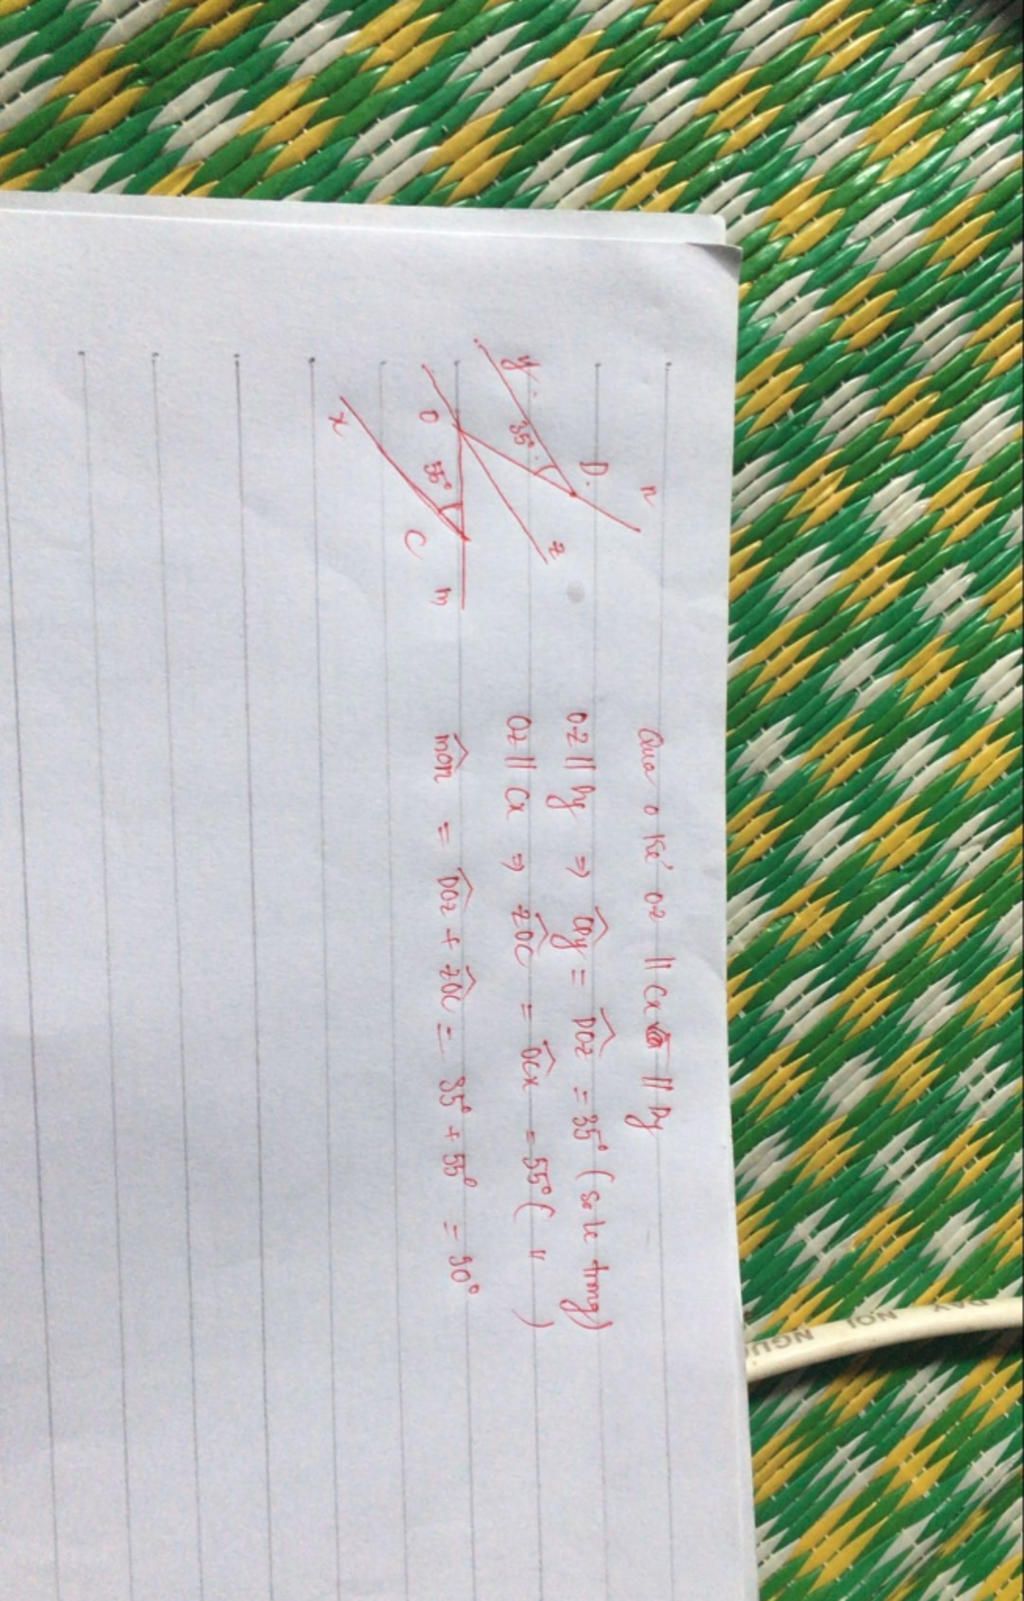 n
D.
y
35°
z
O
55°
C
m
x
Qua O kẻ Oz // Cx // Dy
Oz // Dy ⇒ ODy = DOz = 35° ( so le trong)
Oz // Cx ⇒ zOC = OCx = 55° ( " )
mOn = DOz + zOC = 35° + 55° = 90°
DAY NOI NGUO